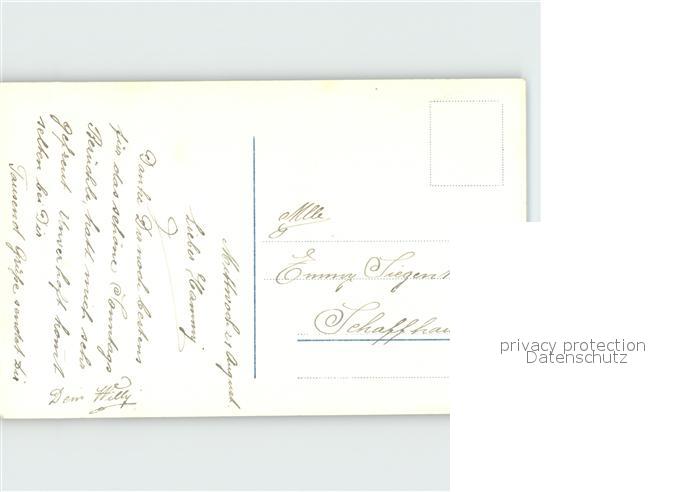 Mittwoch 21 August.
Liebes
Danke Dir noch bestens
für das schöne Sonntags
hat mich sehr
gefreut Unverhoft komt
selten bei Dir
Tausend Grüße sendet Dir
Dein Willy
Mlle
Emmy Siegen
Schaffhau
privacy protection
Datenschutz